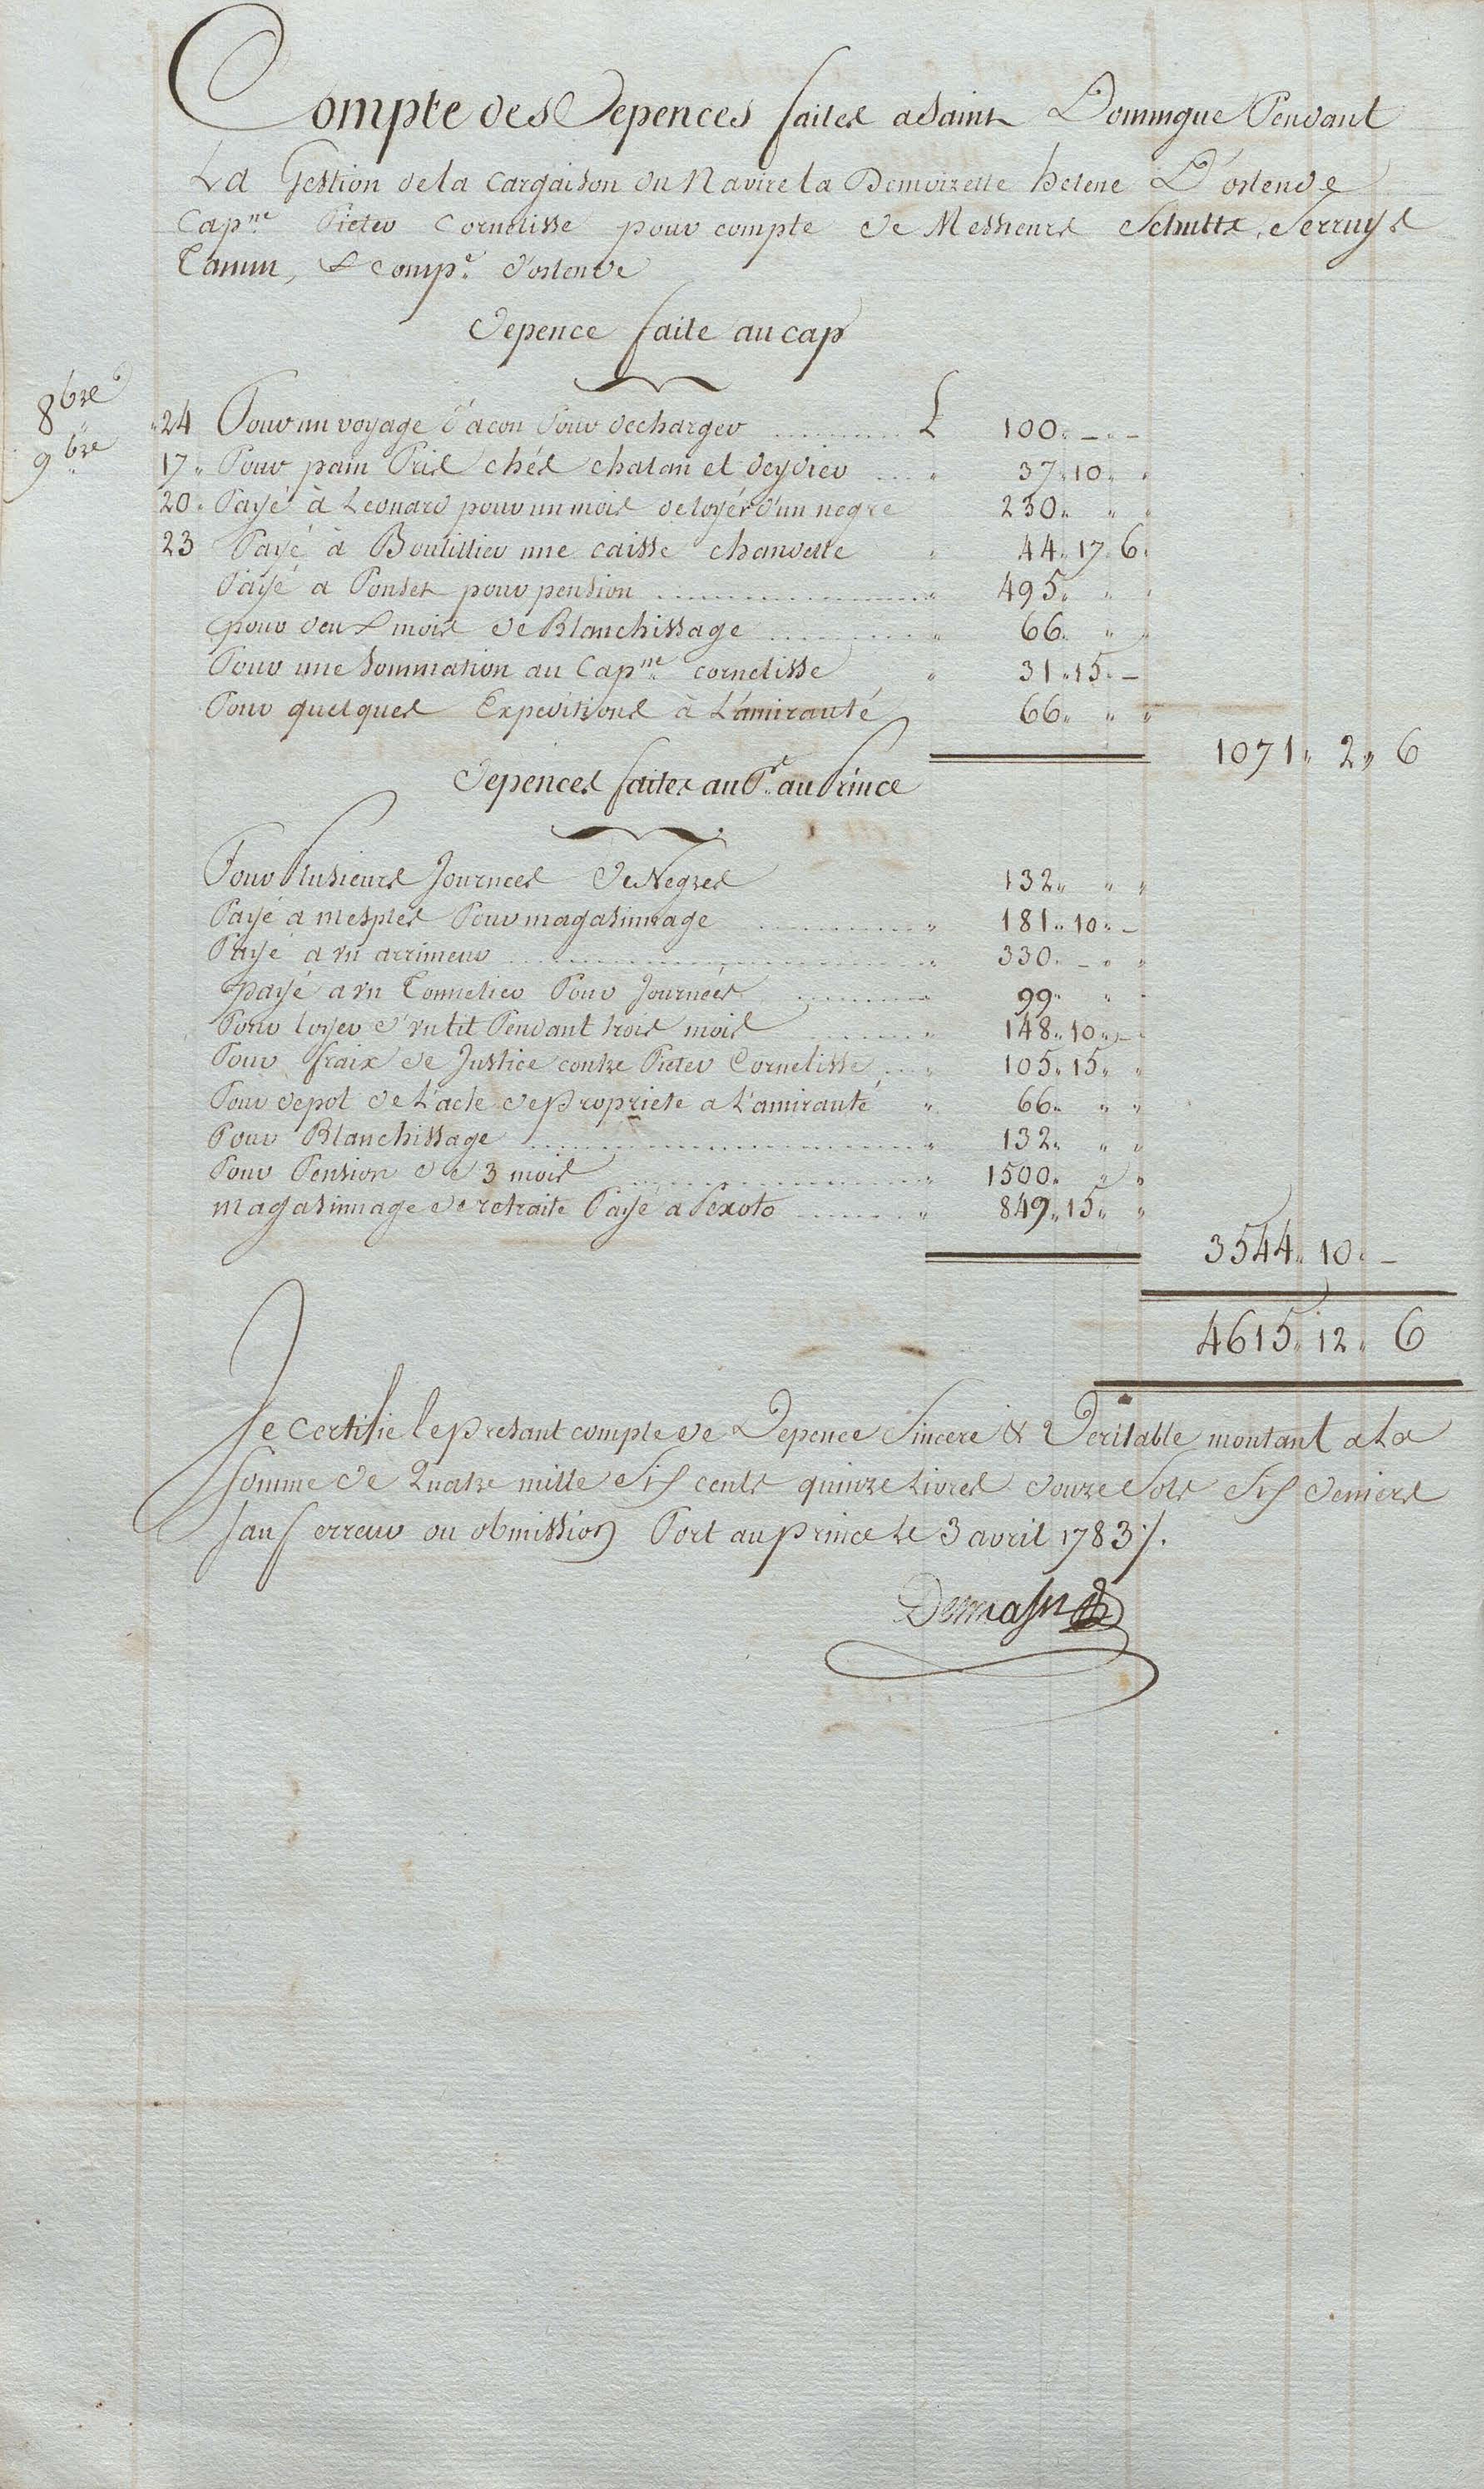 Compte des Depences faites a Saint Domingue Pendant
La Gestion de la Cargaison du Navire la Demoizelle helene D'ostende
Cap.ne Pieter Cornelisse pour compte de Messieurs Schutts, Serruys
Tamm, & Comp.e d'ostende
Depence faite au cap
8bre 24 Pour un voyage d'acon Pour decharger £ 100 " — " —
9bre 17 " Pour pain Pris chés chatan et deydier " 37 " 10 " "
20 " Payé à Leonard pour un mois de loyér d'un negre 230 " " "
23 Payé à Boutillier une caisse chandelle " 44 " 17 " 6
Payé a Ponset pour pension " 495 " " "
pour deux mois de Blanchissage " 66 " " "
Pour une Sommation au Cap.ne cornelisse " 31 " 15 " —
Pour quelques Expeditions à L'amirauté 66 " " "
1071 " 2 " 6
Depences faites au P.t au Prince
Pour Plusieurs Journees de Negres 132 " " "
Payé a mesples Pour magasinnage " 181 " 10 " —
Payé a un arrimeur " 330 " — " "
payé a un Tonnelier Pour Journées " 99 " " "
Pour loyer d'un lit Pendant trois mois " 148 " 10 " —
Pour fraix de Justice contre Pieter Cornelisse " 105 " 15 " "
Pour depot de L'acte de propriete a L'amirauté " 66 " " "
Pour Blanchissage " 132 " " "
Pour Pension de 3 mois " 1500 " " "
magasinnage de retraite Payé a Pexoto " 849 " 15 " "
3544 " 10 " —
4615 " 12 " 6
Je certifie le presant compte de Depence Sincere & Veritable montant a La
Somme de Quatre mille Six cents quinze Livres douze Sols Six deniers
Sauf erreur ou obmission Port au prince le 3 avril 1783 /.